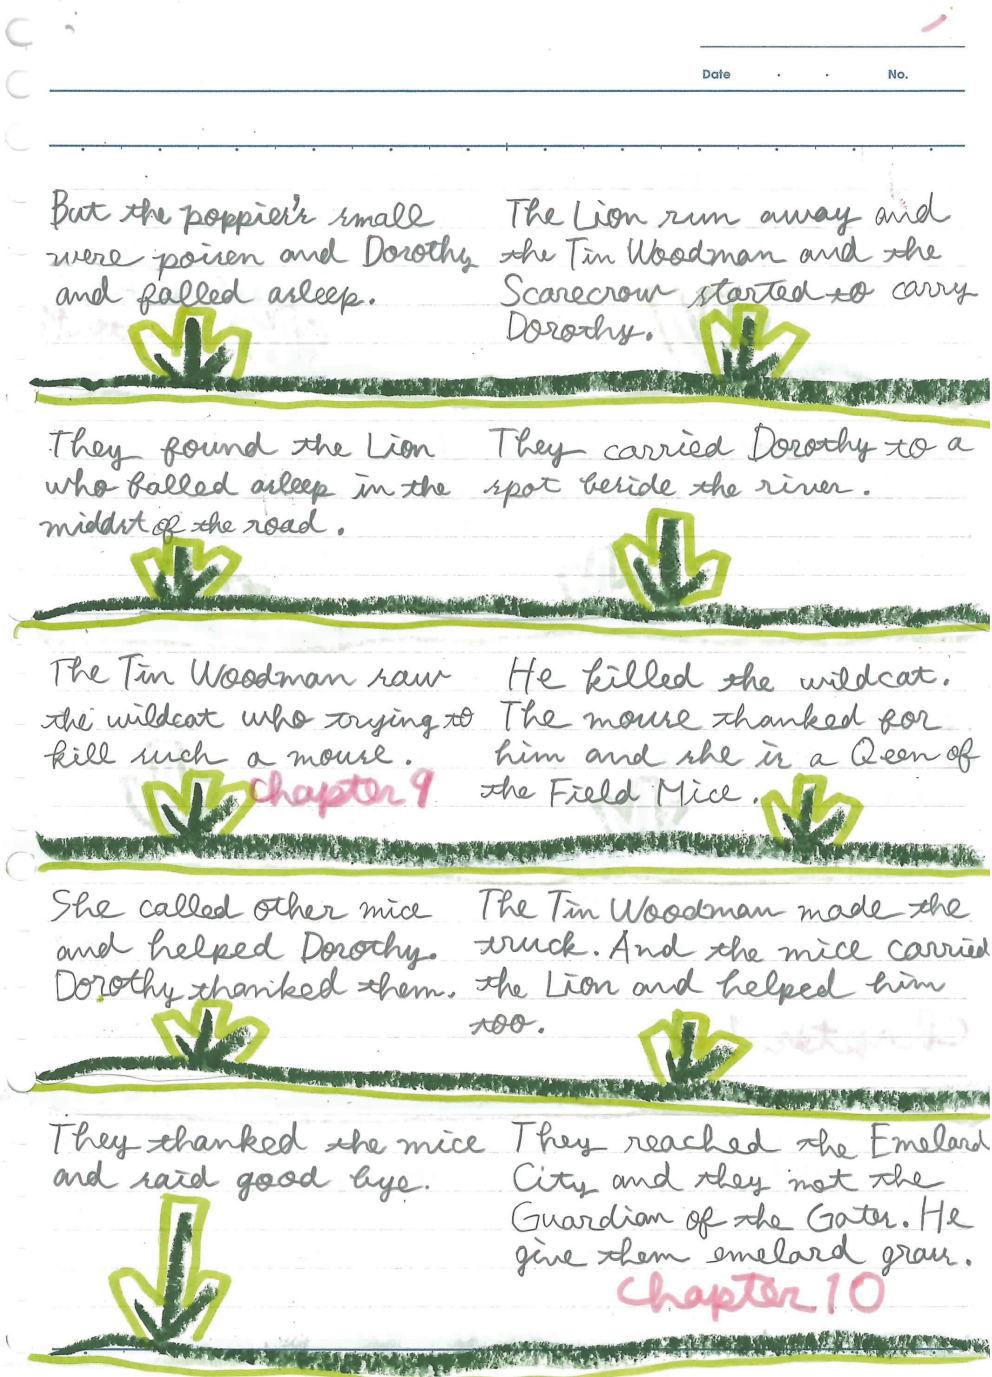 Date . . No.
But the poppies's small
were poisen and Dorothy
and falled asleep.
The Lion run away and
the Tin Woodman and the
Scarecrow started to carry
Dorothy.
They found the Lion
who falled asleep in the
middst of the road.
They carried Dorothy to a
spot beside the river.
The Tin Woodman saw
the wildcat who trying to
kill such a mouse.
chapter 9
He killed the wildcat.
The mouse thanked for
him and she is a Qeen of
the Field Mice.
She called other mice
and helped Dorothy.
Dorothy thanked them.
The Tin Woodman made the
truck. And the mice carried
the Lion and helped him
too.
They thanked the mice
and said good bye.
They reached the Emelard
City and they met the
Guardian of the Gates. He
give them emelard grass.
chapter 10